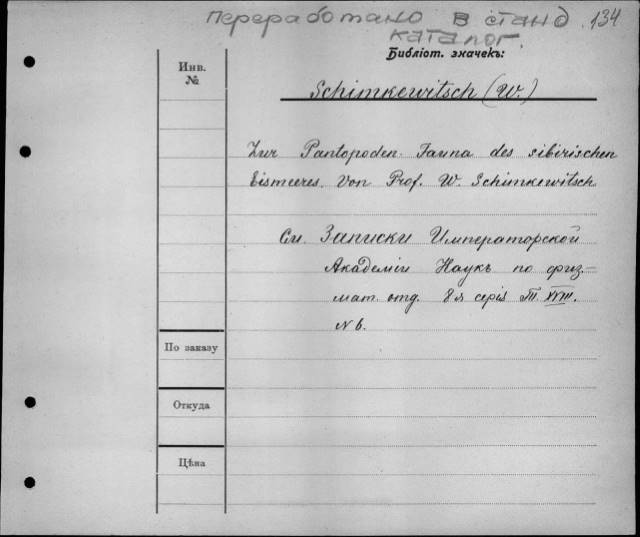 переработано в станд. 134
каталог.
Библіот. значекъ:
Инв.
№
Schimkewitsch (W.)
Zur Pantopoden-Fauna des sibirischen
Eismeeres. Von Prof. W. Schimkewitsch
См. Записки Императорской
Академіи Наукъ по физ.-
мат. отд. 8я серія Т. XVIII.
N 6.
По заказу
Откуда
Цѣна